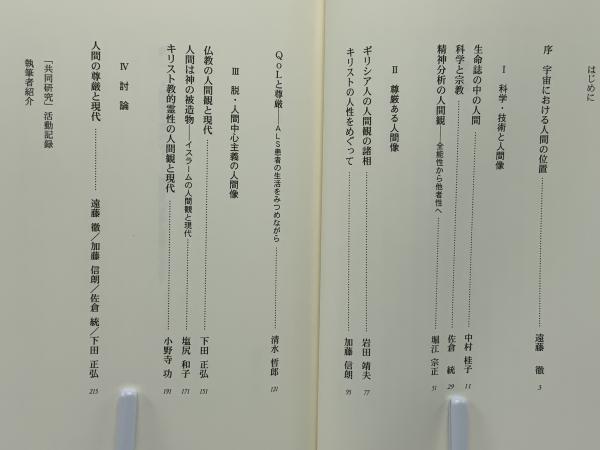 はじめに
序 宇宙における人間の位置 遠藤 徹 3
Ⅰ 科学・技術と人間像
生命誌の中の人間 中村 桂子 11
科学と宗教 佐倉 統 29
精神分析の人間観――全能性から他者性へ 堀江 宗正 51
Ⅱ 尊厳ある人間像
ギリシア人の人間観の諸相 岩田 靖夫 77
キリストの人性をめぐって 加藤 信朗 95
QoLと尊厳――ALS患者の生活をみつめながら 清水 哲郎 121
Ⅲ 脱・人間中心主義の人間像
仏教の人間観と現代 下田 正弘 151
人間は神の被造物――イスラームの人間観と現代 塩尻 和子 171
キリスト教的霊性の人間観と現代 小野寺 功 191
Ⅳ 討論
人間の尊厳と現代 遠藤 徹／加藤 信朗／佐倉 統／下田 正弘 215
「共同研究」活動記録
執筆者紹介